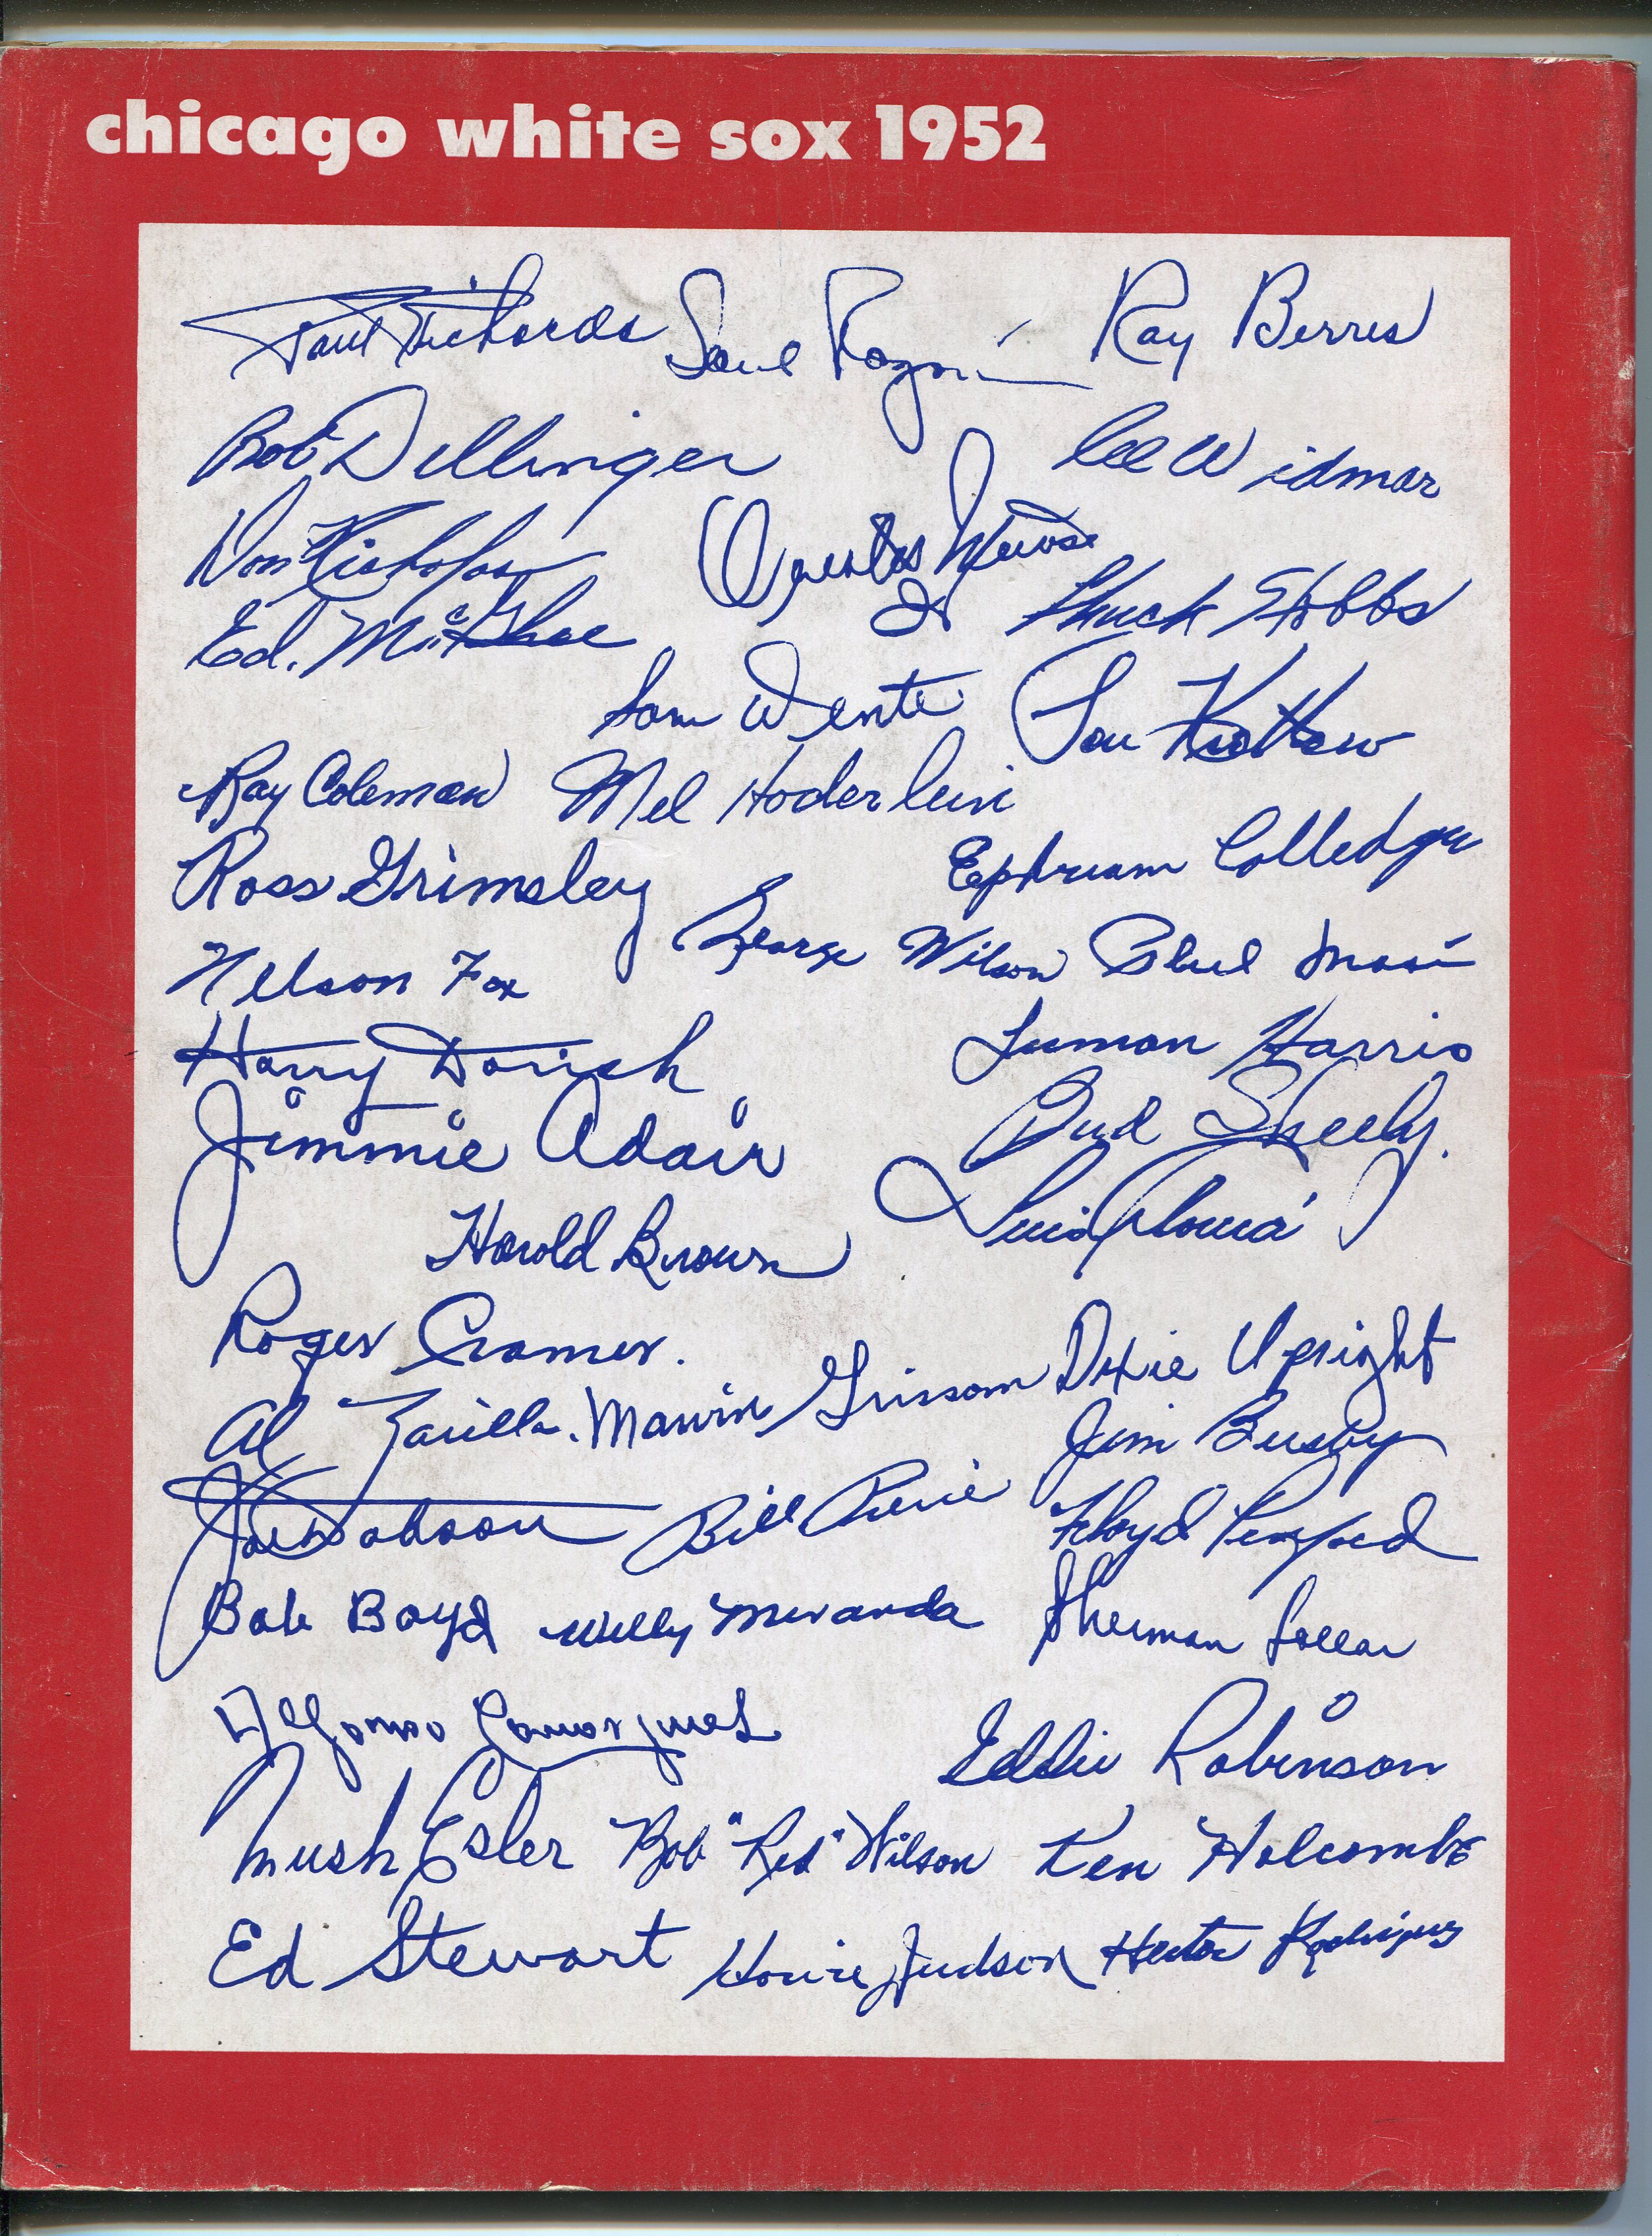 chicago white sox 1952
Paul Richards Saul Rogovin Ray Berres
Bob Dillinger Lee Widmar
Don Nicholas Orestes Minoso
Jr Chuck Hobbs
Ed. McGhee
Sam Dente Lou Kretlow
Ray Coleman Mel Hoderlein
Ross Grimsley Ephriam Colledge
Nelson Fox George Wilson
Harry Dorish Luman Harris
Jimmie Adair Bud Sheely.
Harold Brown Luis Aloma
Roger Cramer.
Al Zarilla. Marvin Grissom Dixie Upright
Jim Busby
Joe Dobson Bill Pierce
Bob Boyd Willy Miranda Sherman Lollar
Alfonso Carrasquel Eddie Robinson
Mush Esler Bob "Red" Wilson Ken Holcombe
Ed Stewart Howie Judson Hector Rodriguez